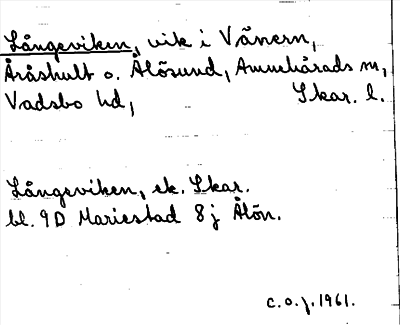 Långeviken, vik i Vänern,
Åråshult o. Ålösund, Amnehärads sn,
Vadsbo hd, Skar. l.
Långeviken, ek. Skar.
bl. 9D Mariestad 8j Ålön.
c.o.j. 1961.